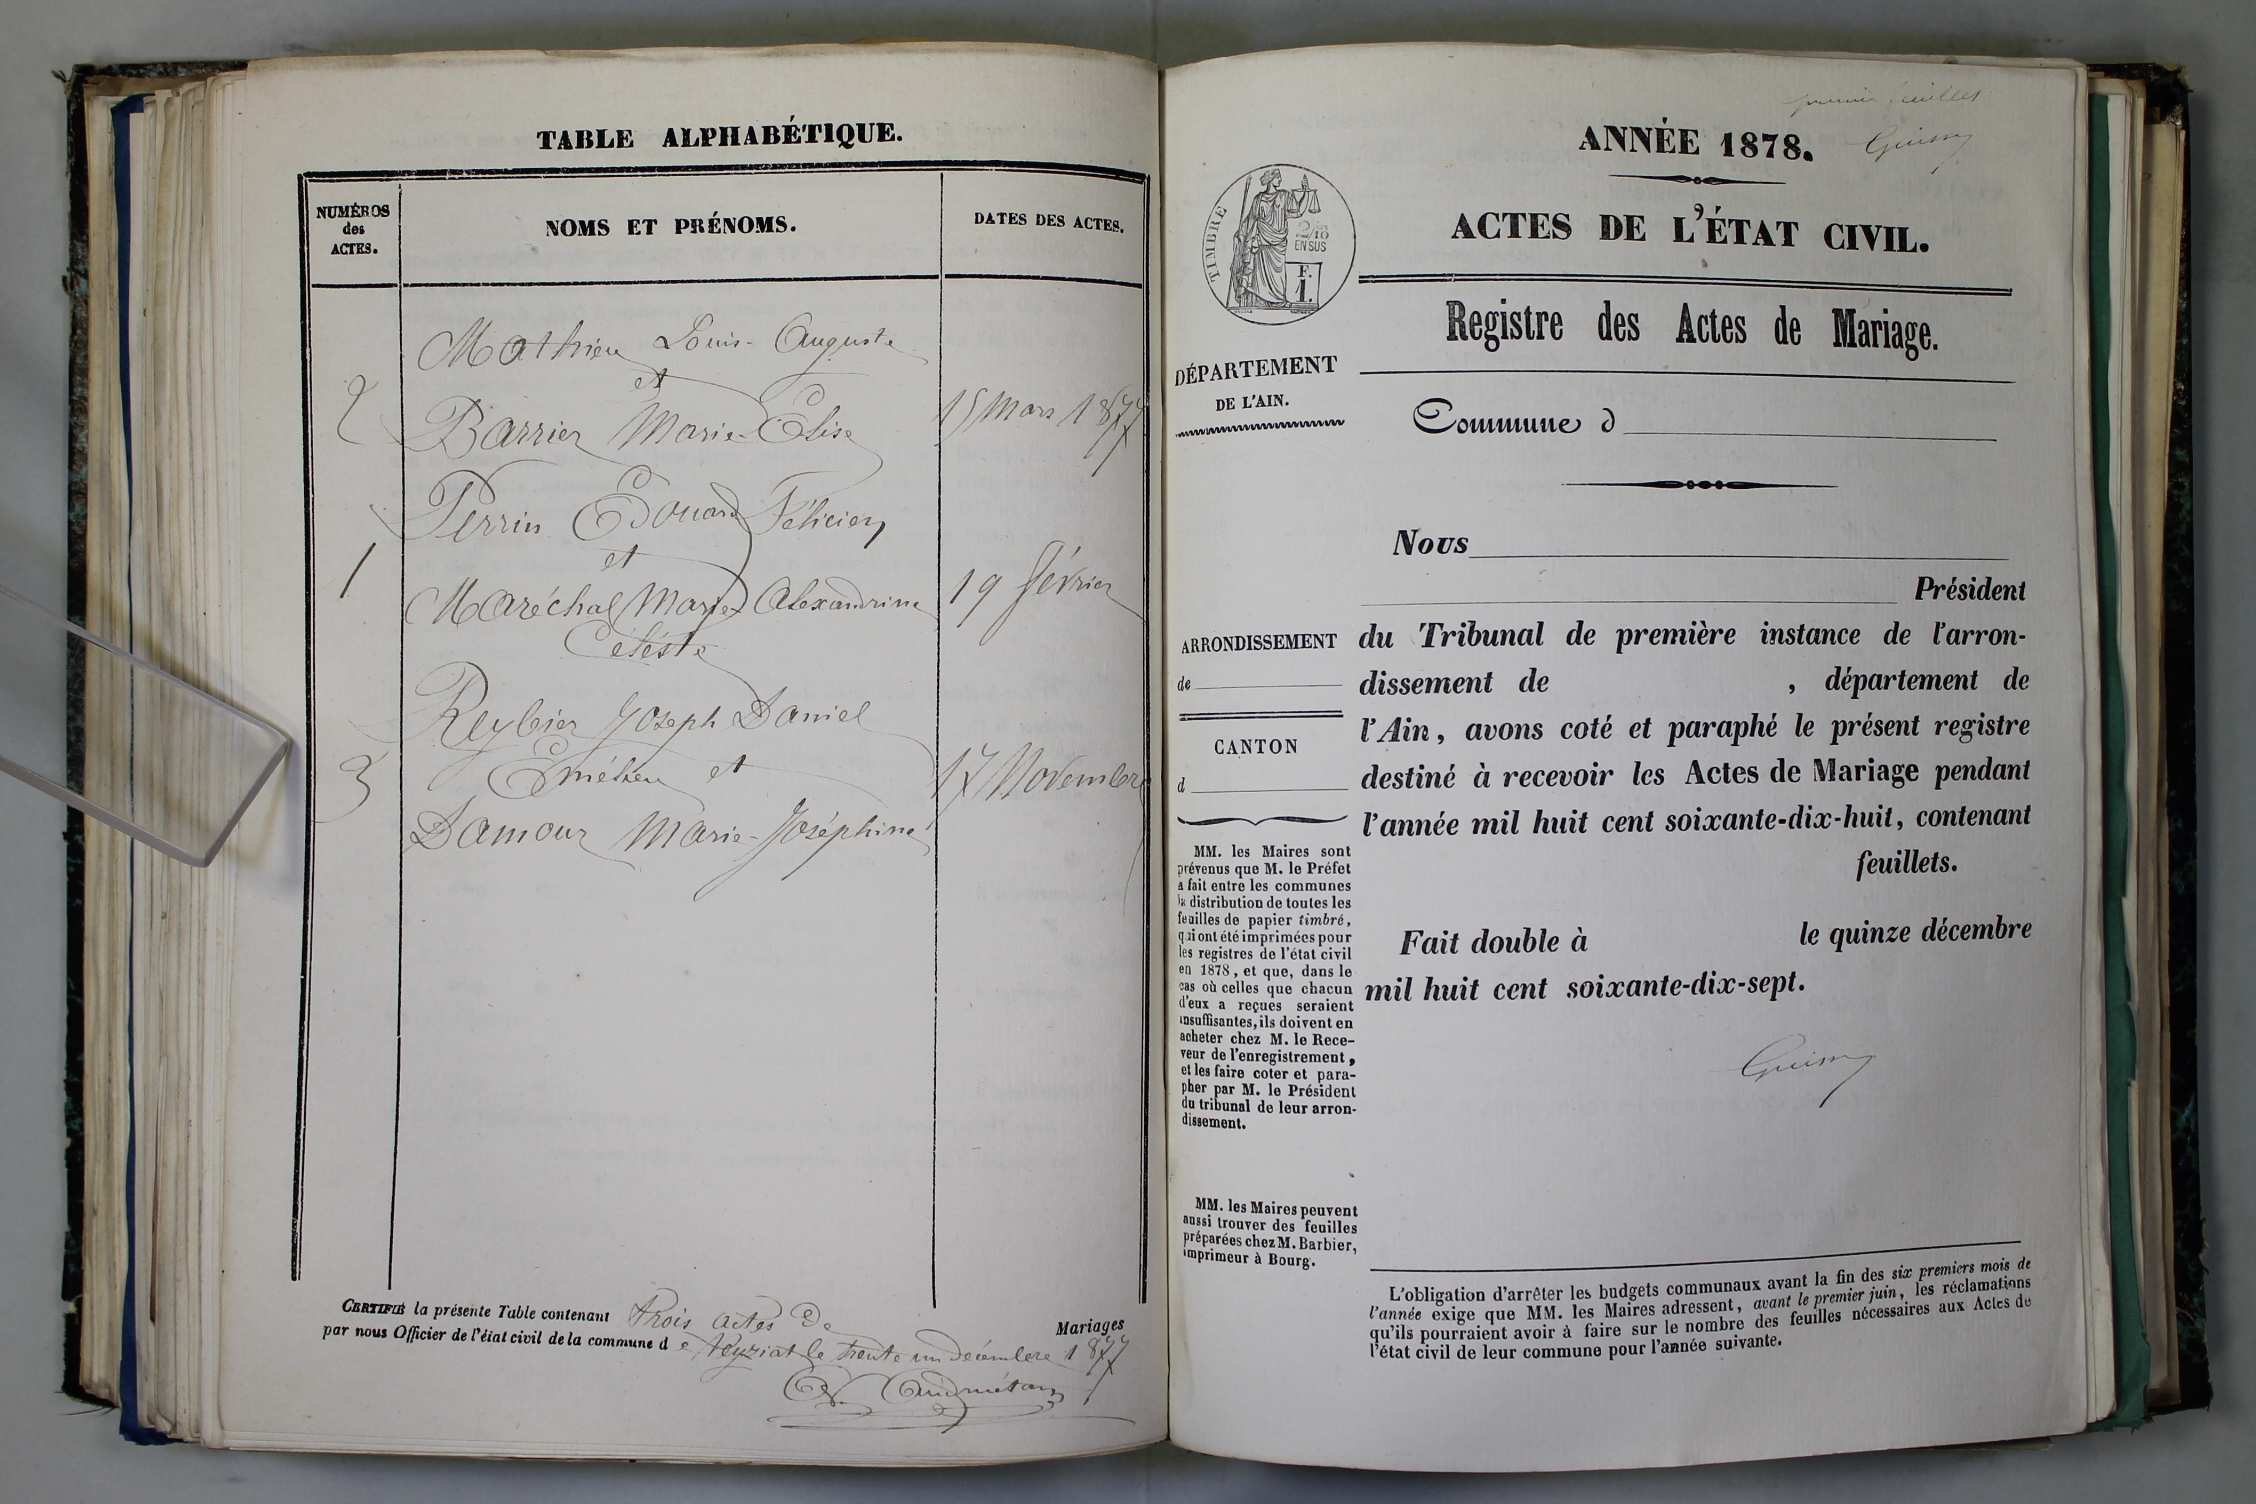 TABLE ALPHABÉTIQUE.
NUMÉROS
des
ACTES.
NOMS ET PRÉNOMS.
DATES DES ACTES.
Mathieu Louis-Auguste
et
2 Barrier Marie-Elise 15 Mars 1877
Perrin Edouard Félicien
et
1 Maréchal Marie Alexandrine 19 février
Céleste
Reybier Joseph Daniel
3 et 17 Novembre
Damour Marie-Joséphine
CERTIFIÉ la présente Table contenant trois actes de Mariages
par nous Officier de l'état civil de la commune de Veyziat le trente un décembre 1877
premier
ANNÉE 1878.
ACTES DE L'ÉTAT CIVIL.
TIMBRE
2/10
EN SUS
F.
1.
Registre des Actes de Mariage.
DÉPARTEMENT
DE L'AIN.
Commune d
Nous
Président
ARRONDISSEMENT
de
CANTON
d
du Tribunal de première instance de l'arron-
dissement de , département de
l'Ain, avons coté et paraphé le présent registre
destiné à recevoir les Actes de Mariage pendant
l'année mil huit cent soixante-dix-huit, contenant
feuillets.
Fait double à le quinze décembre
mil huit cent soixante-dix-sept.
MM. les Maires sont
prévenus que M. le Préfet
a fait entre les communes
la distribution de toutes les
feuilles de papier timbré,
qui ont été imprimées pour
les registres de l'état civil
en 1878, et que, dans le
cas où celles que chacun
d'eux a reçues seraient
insuffisantes, ils doivent en
acheter chez M. le Rece-
veur de l'enregistrement,
et les faire coter et para-
pher par M. le Président
du tribunal de leur arron-
dissement.
MM. les Maires peuvent
aussi trouver des feuilles
préparées chez M. Barbier,
imprimeur à Bourg.
L'obligation d'arrêter les budgets communaux avant la fin des six premiers mois de
l'année exige que MM. les Maires adressent, avant le premier juin, les réclamations
qu'ils pourraient avoir à faire sur le nombre des feuilles nécessaires aux Actes de
l'état civil de leur commune pour l'année suivante.